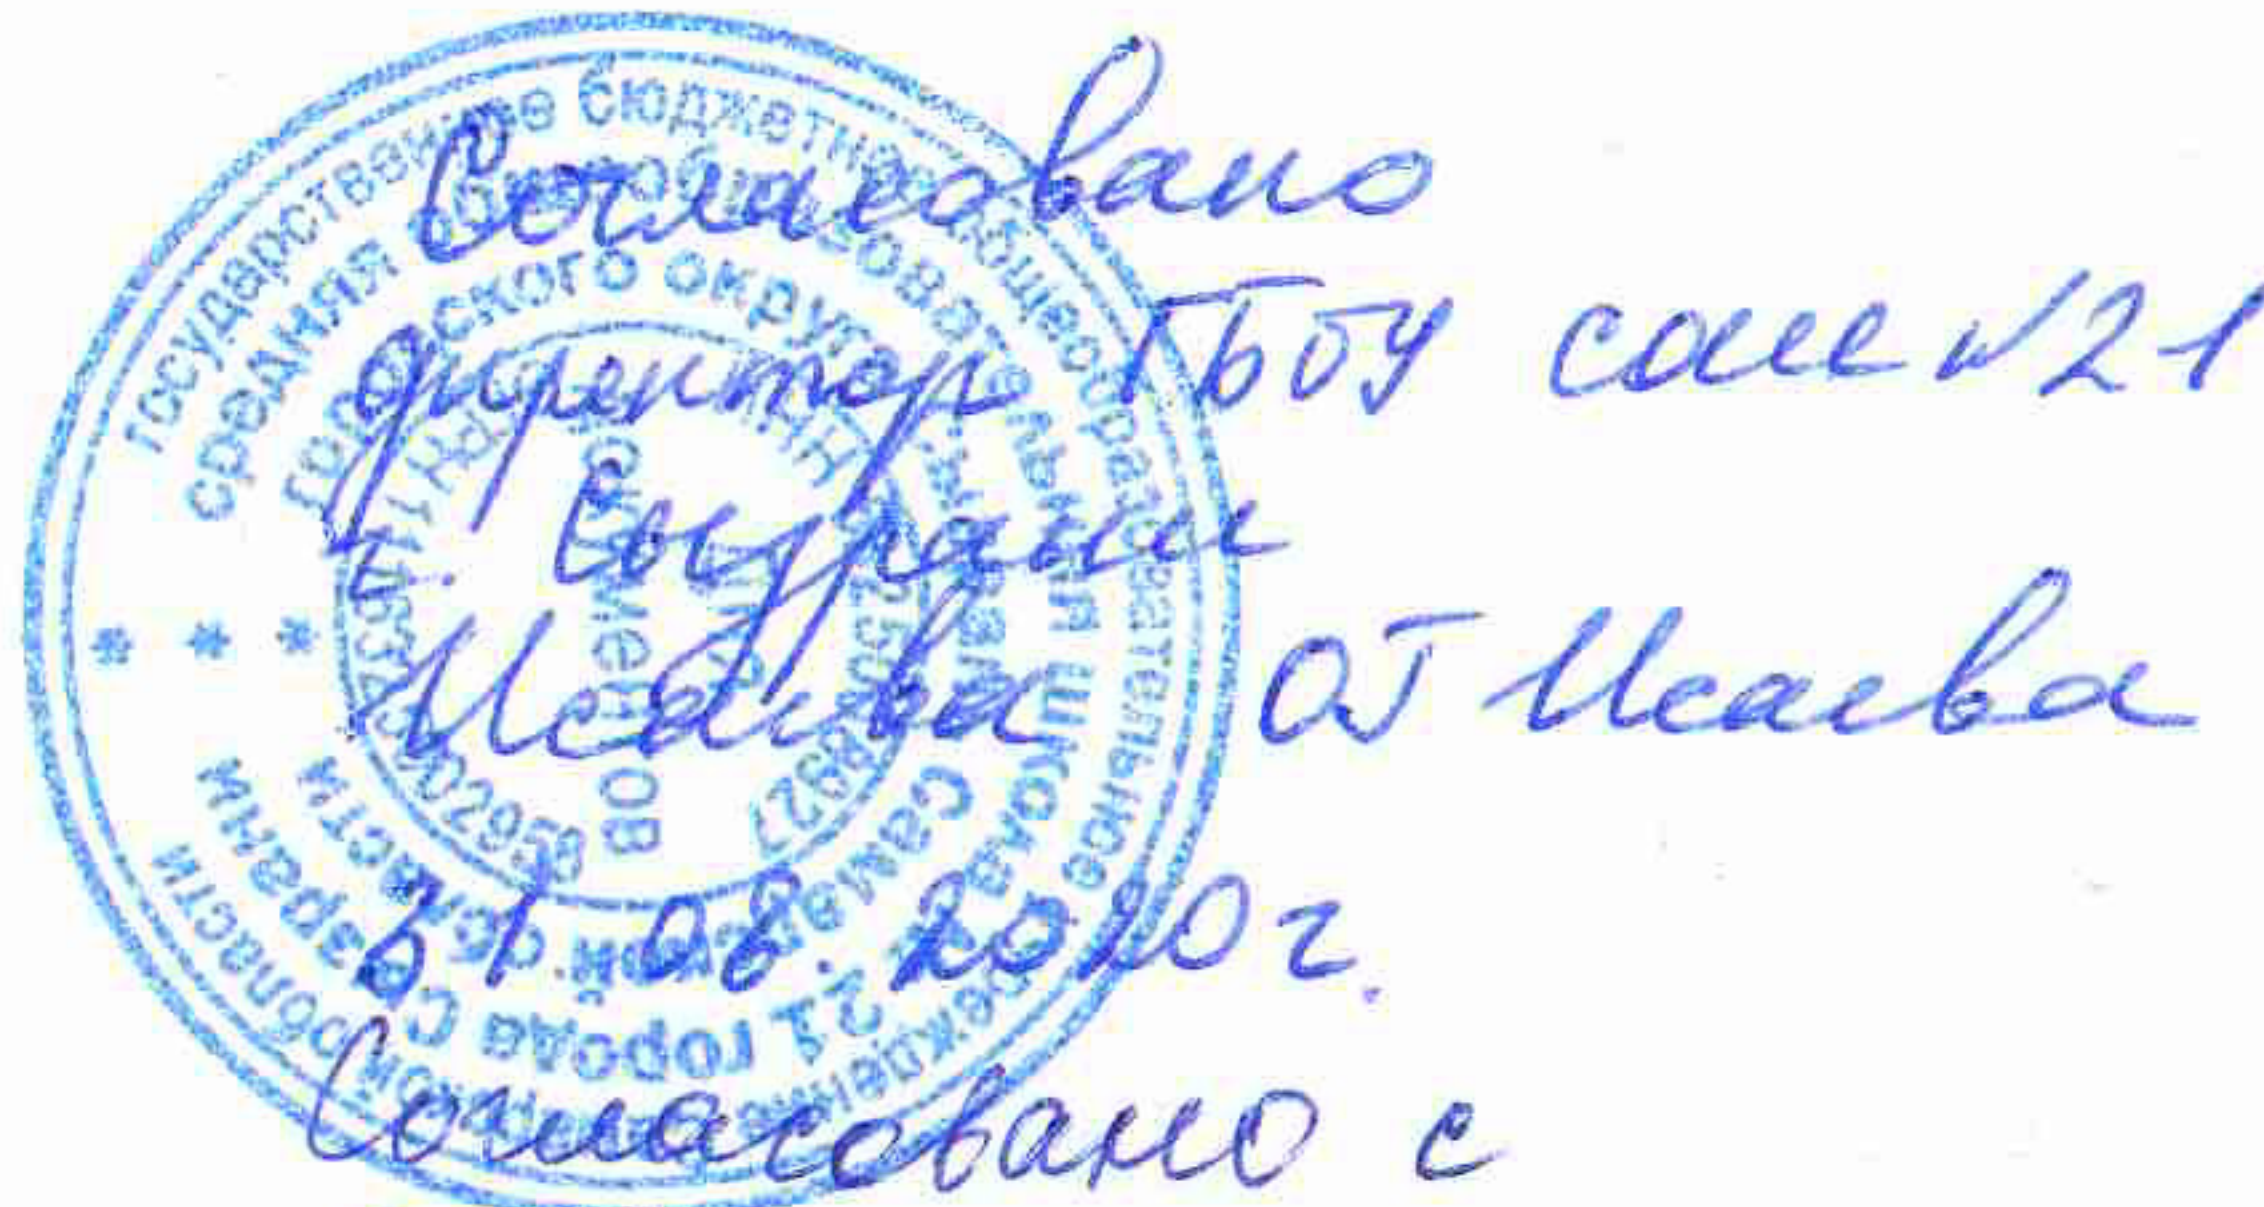 Согласовано
директор ГБОУ сош №21
г. Сызрани
Исаева ОГ Исаева
31.08.2020г.
Согласовано с
государственное бюджетное общеобразовательное учреждение Самарской области
средняя общеобразовательная школа № 21 города Сызрани
городского округа Сызрань Самарской области
Для документов
ИНН
ОГРН
* * *